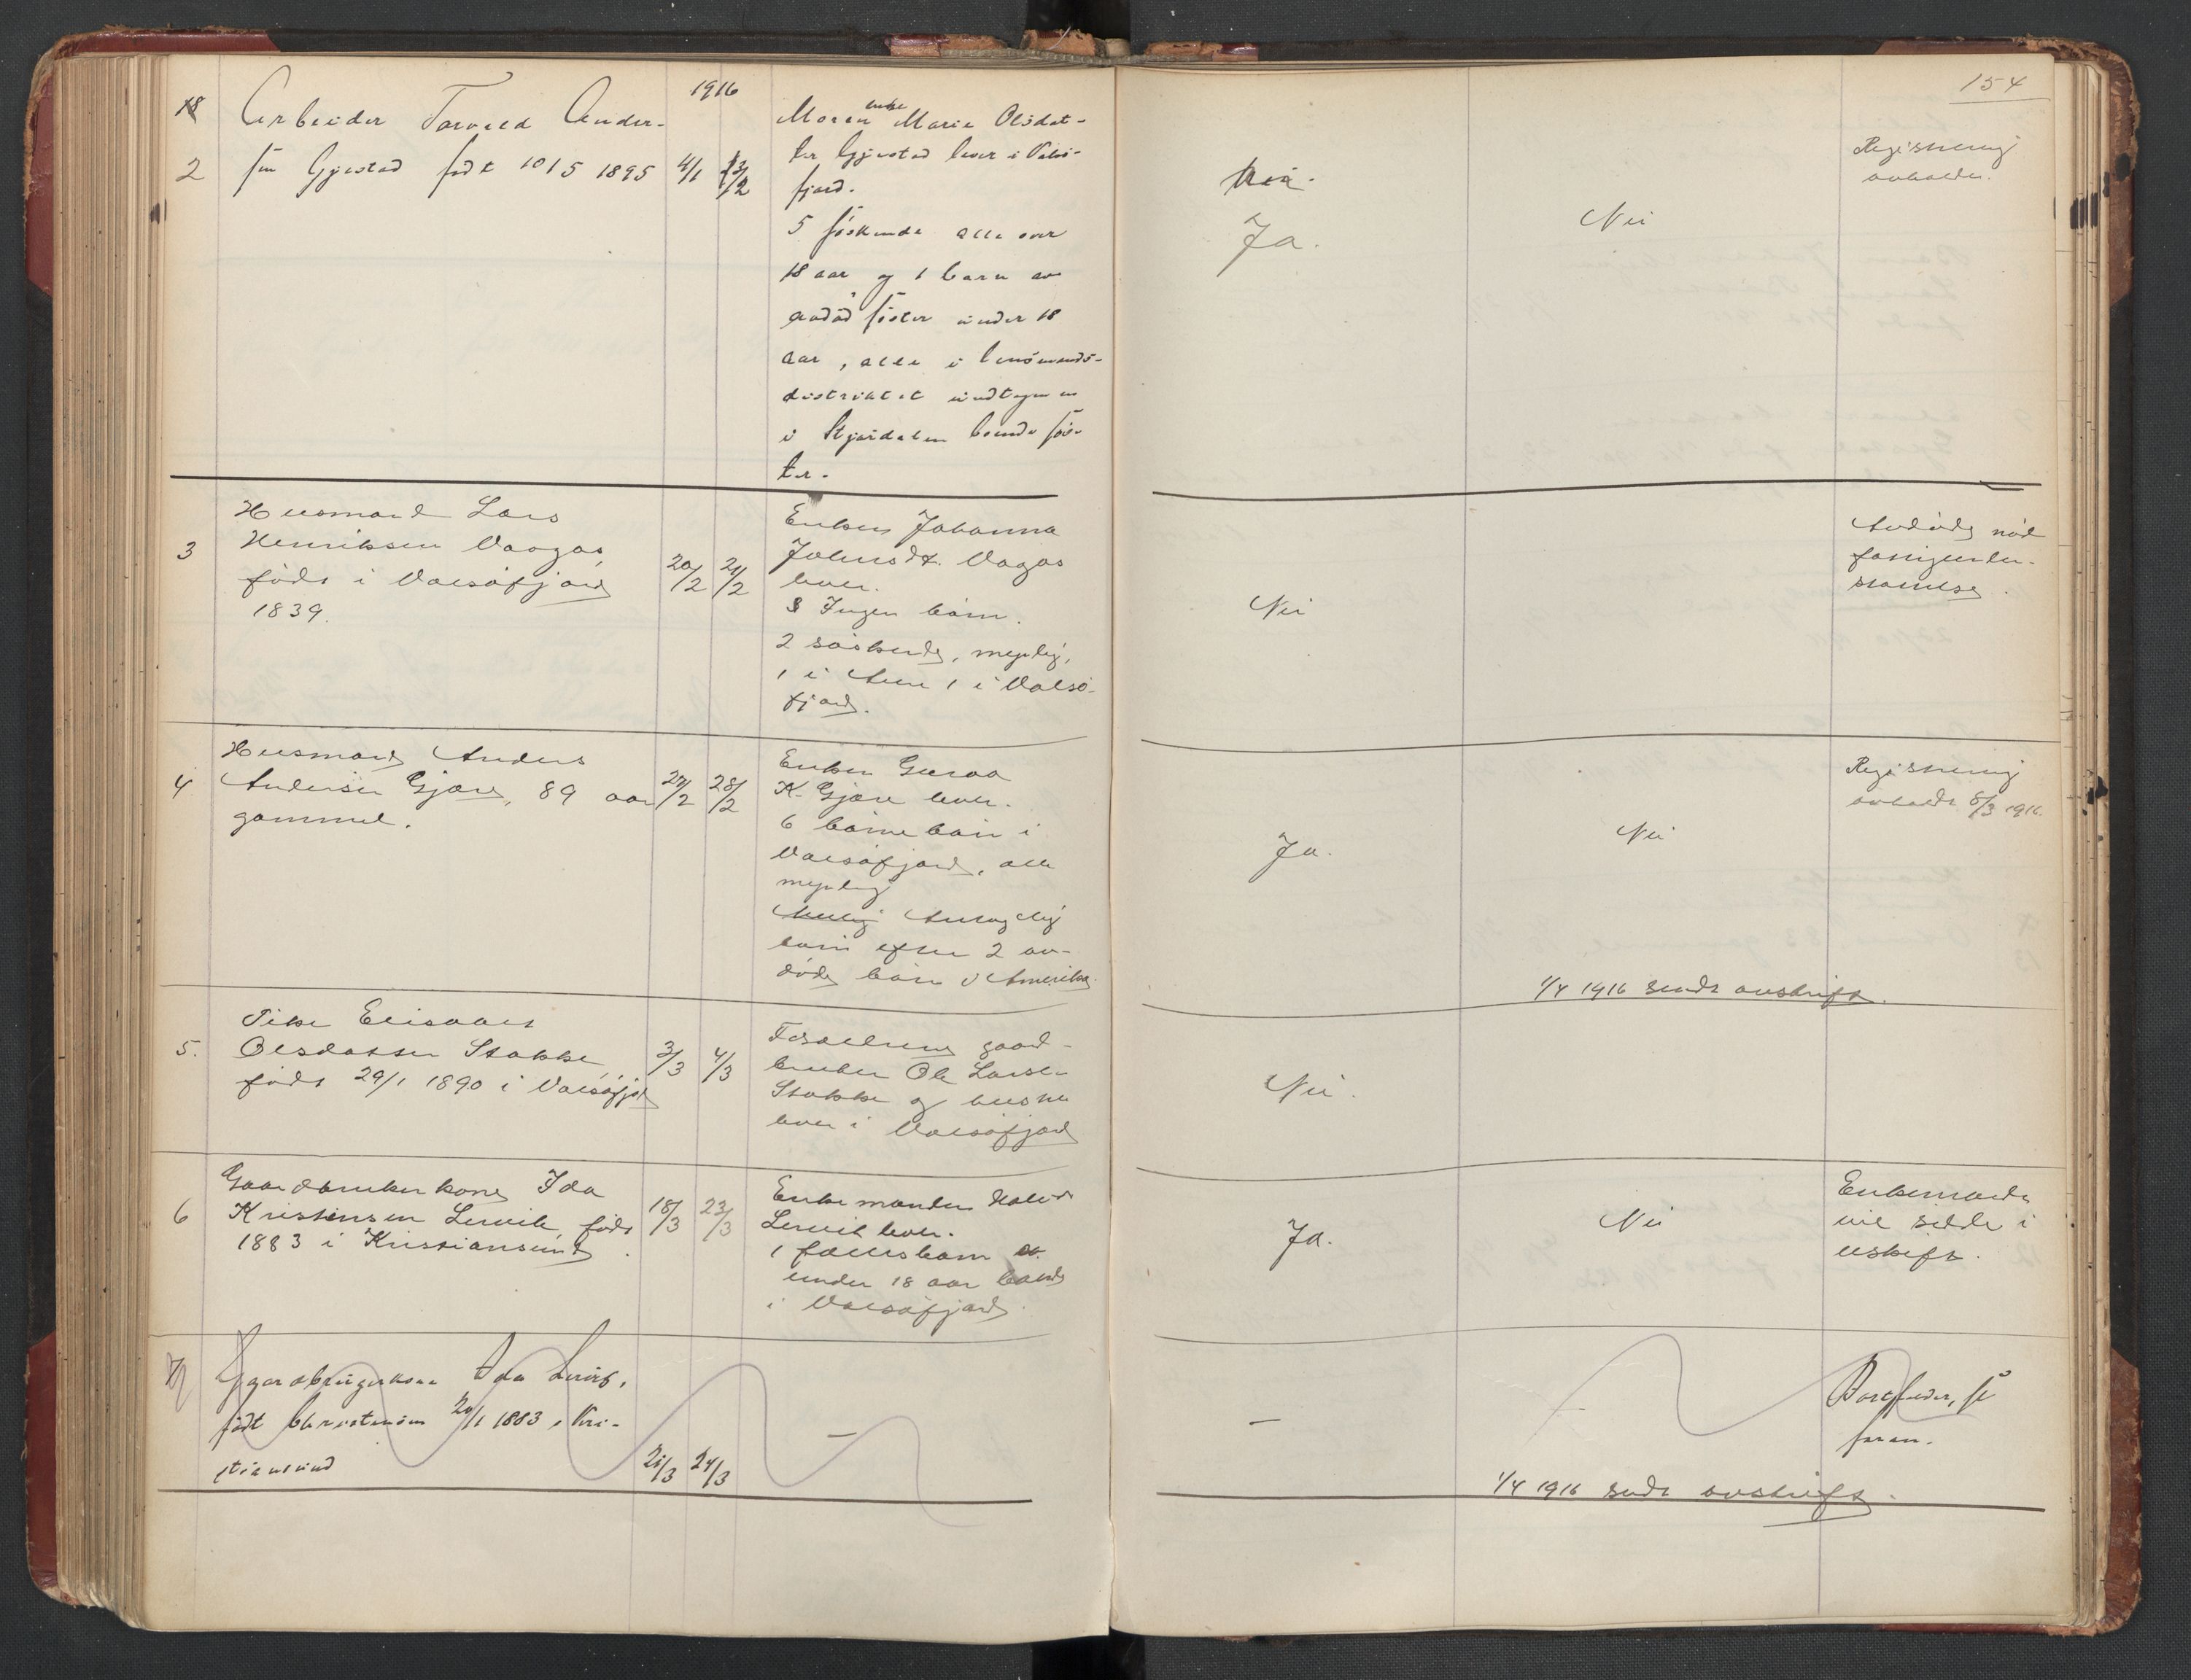 154
1916
18
Arbeider Torvald Ander-
2 sen Gjestad født 1015 1895 4/1 23/2
Moren enke Marie Olsdat-
ter Gjestad lever i Valsø-
fjord.
5 søskende alle over
18 aar og 1 barn av
avdød søster under 18
aar, alle i lensmands-
distriktet undtagen en
i Stjørdalen boende søs-
ter.
Nei.
Ja.
Nei
Registrering
avholdes.
3 Husmand Lars
Henriksen Vaagos
født i Valsøfjord
1839.
20/2 21/2
Enken Johanna
Johnsdt. Vagos
lever.
3 Ingen børn.
2 søskende, myndig,
1 i Aure 1 i Valsø-
fjord.
Nei
Avdøde nød
fattigunder-
støttelse.
4 Husmand Anders
Andersen Gjøre, 89 aar
gammel.
27/2 28/2
Enken Guroa
K. Gjøre lever.
6 børnebørn i
Valsøfjord, alle
myndig
Antagelig
børn efter 2 av-
døde børn i Amerika.
Ja.
Nei
Registrering
avholdt 8/3 1916.
1/4 1916 sendt avskrift.
5. Pike Elisabet
Olsdatter Stokke,
født 29/1 1890 i Valsøfjord
3/3 4/3
Forældrene gaard-
bruker Ole Larsen
Stokke og hustru
lever i Valsøfjord
Nei.
6 Gaardbrukerkone Ida
Kristensen Lervik født
1883 i Kristiansund.
18/3 23/3
Enkemanden
Lervik lever.
1 fællesbarn
under 18 aar boende
i Valsøfjord.
Ja.
Nei
Enkemanden
vil sidde i
uskifte.
7 Gaardbrugerkone Ida Lervik,
født Christensen 20/1 1883 i Kri-
stiansund
21/3 24/3
—
—
Bortfalder, se
foran.
1/4 1916 sendt avskrift.